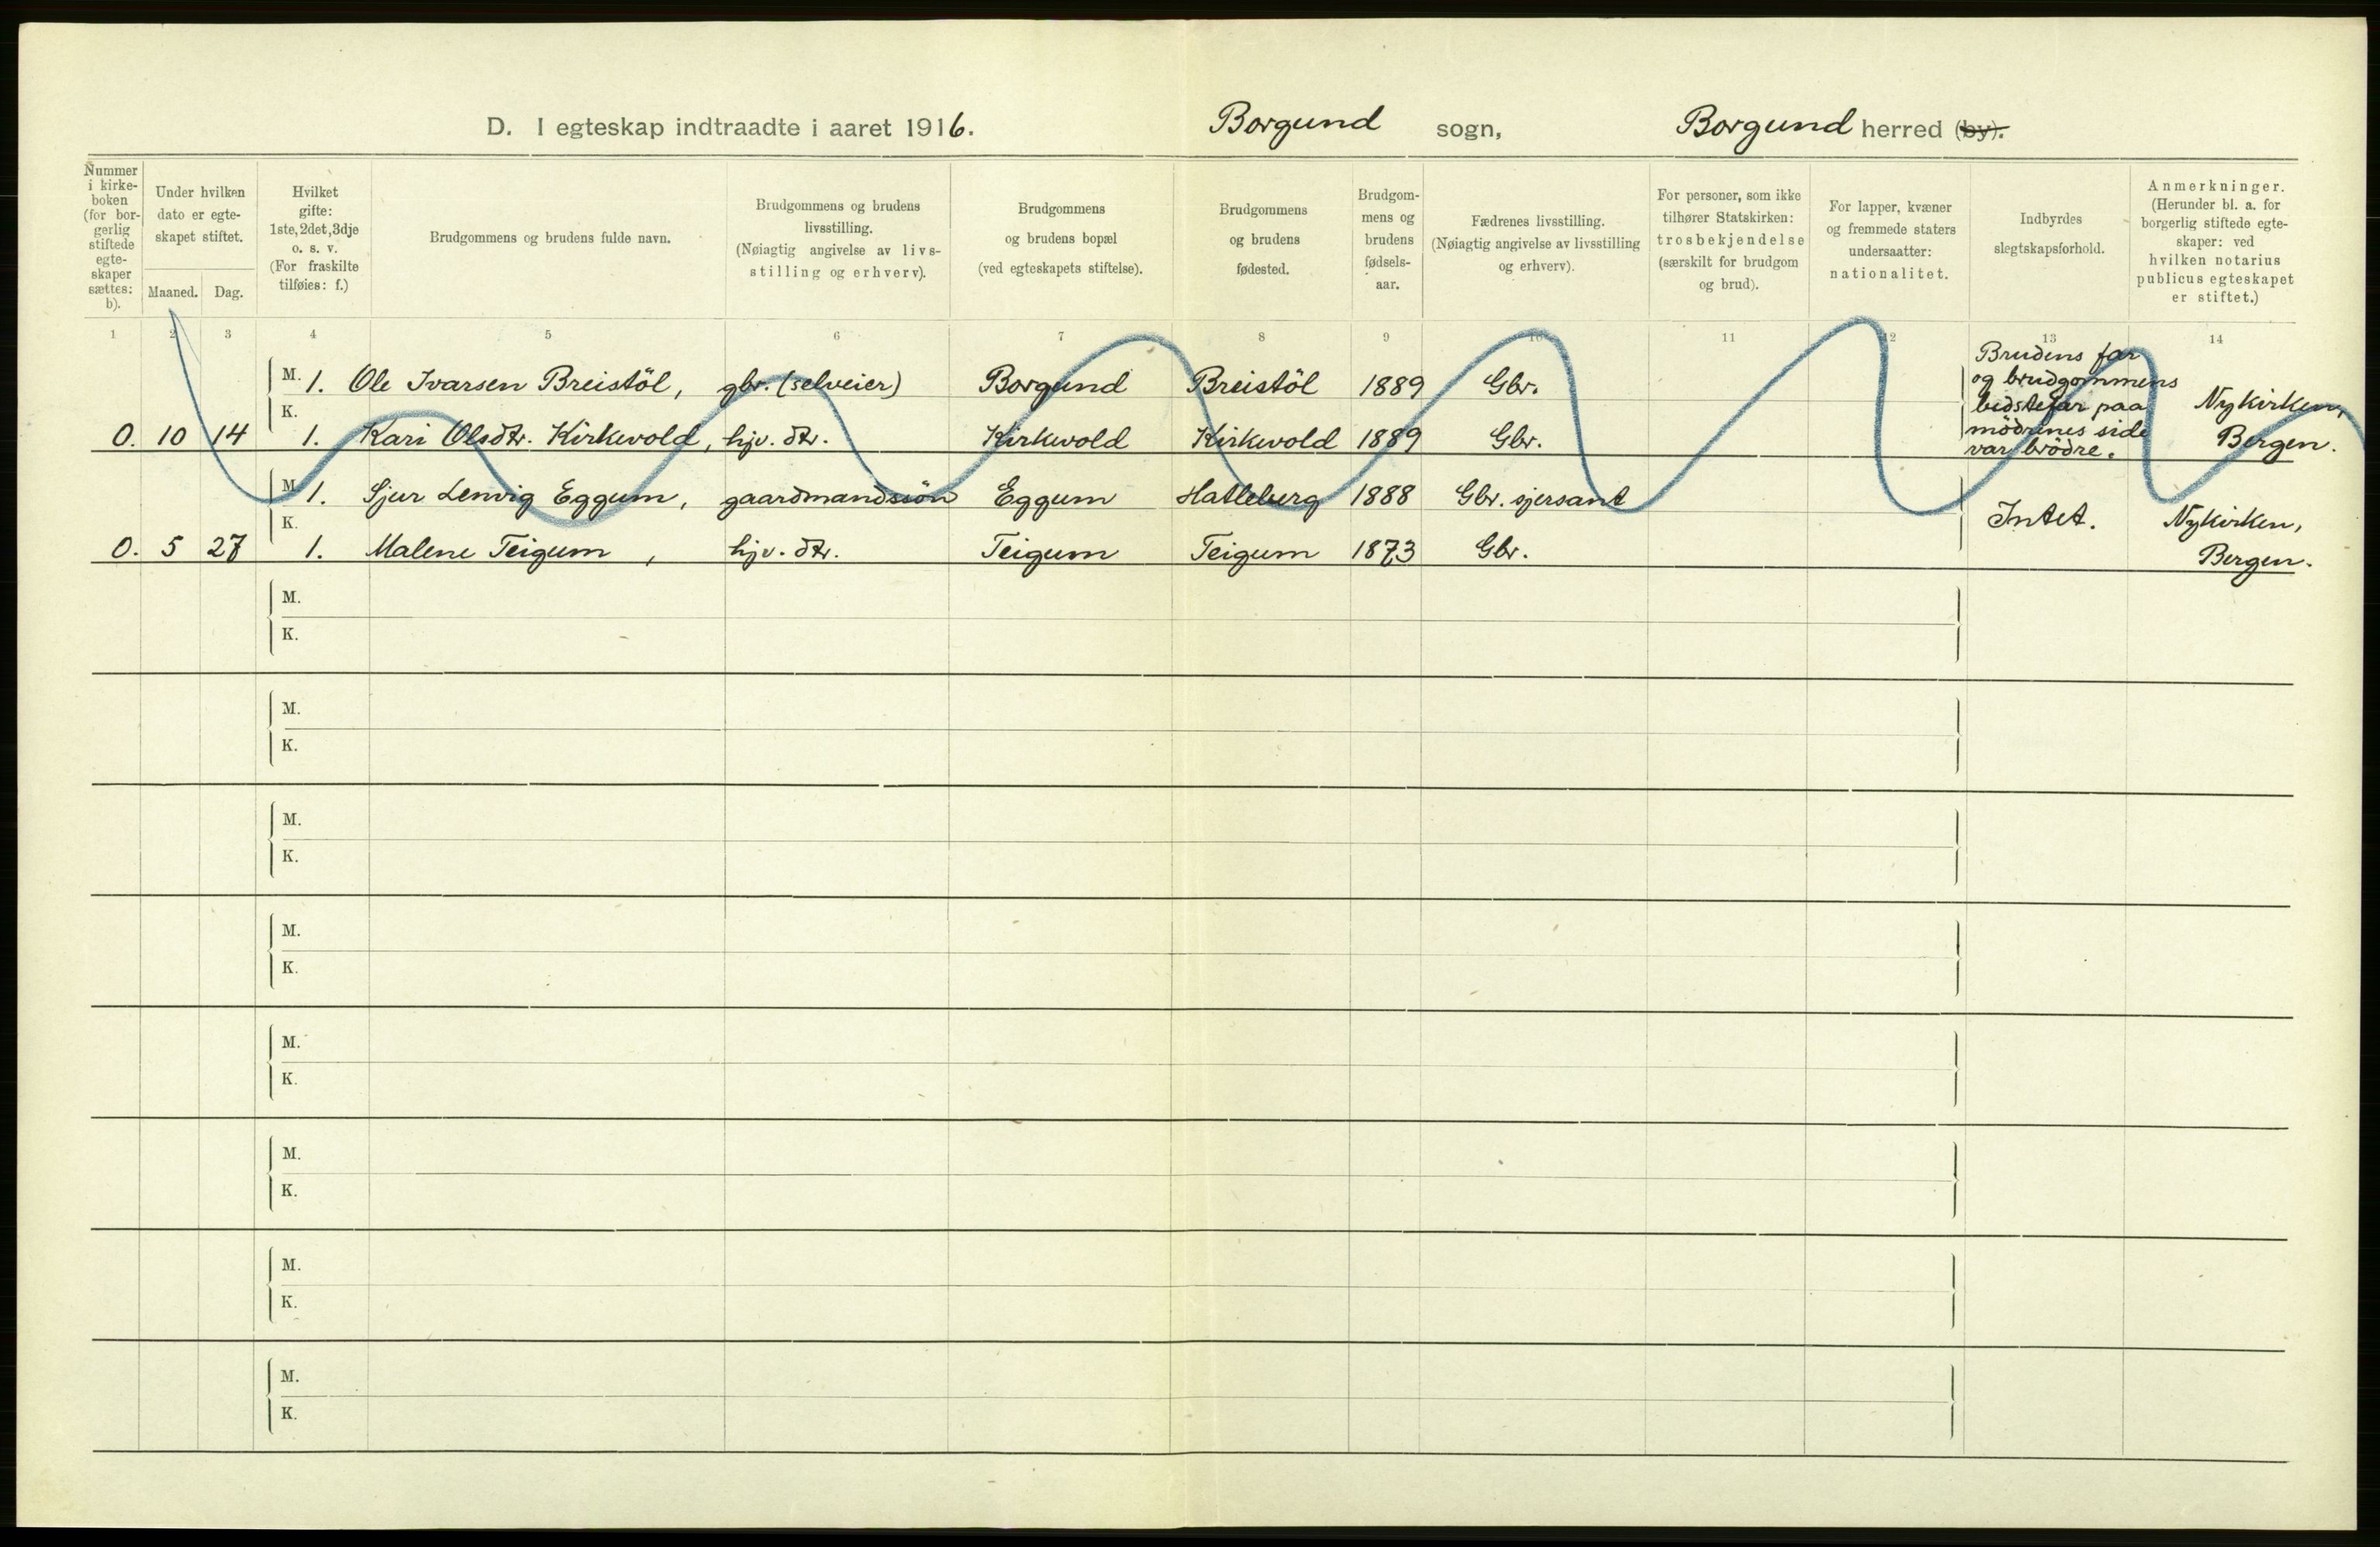 D. I egteskap indtraadte i aaret 1916. Borgund sogn, Borgund herred (by).
Nummer i kirke-boken (for bor-gerlig stiftede egte-skaper sættes: b).
Under hvilken dato er egte-skapet stiftet.
Maaned. Dag.
Hvilket gifte: 1ste, 2det, 3dje o. s. v. (For fraskilte tilføies: f.)
Brudgommens og brudens fulde navn.
Brudgommens og brudens livsstilling. (Nøiagtig angivelse av livs-stilling og erhverv).
Brudgommens og brudens bopæl (ved egteskapets stiftelse).
Brudgommens og brudens fødested.
Brudgom-mens og brudens fødsels-aar.
Fædrenes livsstilling. (Nøiagtig angivelse av livsstilling og erhverv).
For personer, som ikke tilhører Statskirken: trosbekjendelse (særskilt for brudgom og brud).
For lapper, kvæner og fremmede staters undersaatter: nationalitet.
Indbyrdes slegtskapsforhold.
Anmerkninger. (Herunder bl. a. for borgerlig stiftede egte-skaper: ved hvilken notarius publicus egteskapet er stiftet.)
1 2 3 4 5 6 7 8 9 10 11 12 13 14
M. 1. Ole Ivarsen Breistöl, gbr. (selveier) Borgund Breistöl 1889 Gbr.
K.
0. 10 14 1. Kari Olsdtr. Kirkevold, hjv. dtr. Kirkevold Kirkevold 1889 Gbr.
Brudens far
og brudgommens
bedstefar paa
mödrenes side
var brödre.
Nykirken,
Bergen.
M. 1. Sjur Lemvig Eggum, gaardmandssön Eggum Hatleberg 1888 Gbr. sjersant
K.
0. 5 27 1. Malene Teigum, hjv. dtr. Teigum Teigum 1873 Gbr.
Intet.
Nykirken,
Bergen.
M.
K.
M.
K.
M.
K.
M.
K.
M.
K.
M.
K.
M.
K.
M.
K.